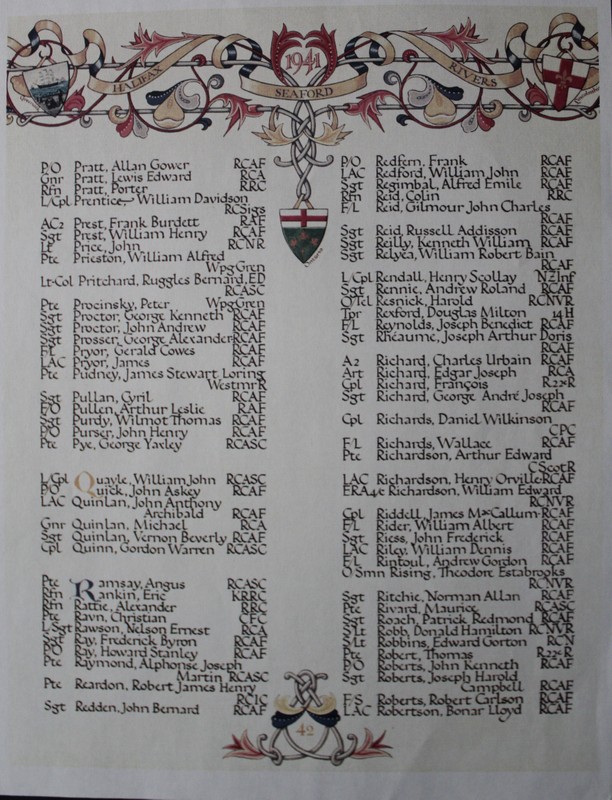 1941
HALIFAX
SEAFORD
RIVERS
P/O Pratt, Allan Gower RCAF
Gnr Pratt, Lewis Edward RCA
Rfn Pratt, Porter RRC
L/Cpl Prentice, William Davidson
RCSigs
AC2 Prest, Frank Burdett RAF
Sgt Prest, William Henry RCAF
Lt Price, John RCNR
Pte Prieston, William Alfred
WpgGren
Lt-Col Pritchard, Ruggles Bernard, ED
RCASC
Pte Procinsky, Peter WpgGren
Sgt Proctor, George Kenneth RCAF
Sgt Proctor, John Andrew RCAF
Sgt Prosser, George Alexander RCAF
F/L Pryor, Gerald Cowes RCAF
LAC Pryor, James RCAF
Pte Pudney, James Stewart Loring
WestmrR
Sgt Pullan, Cyril RCAF
F/O Pullen, Arthur Leslie RAF
Sgt Purdy, Wilmot Thomas RCAF
P/O Purser, John Henry RCAF
Pte Pye, George Yaxley RCASC
L/Cpl Quayle, William John RCASC
P/O Quick, John Askey RCAF
LAC Quinlan, John Anthony
Archibald RCAF
Gnr Quinlan, Michael RCA
Sgt Quinlan, Vernon Beverly RCAF
Cpl Quinn, Gordon Warren RCASC
Pte Ramsay, Angus RCASC
Rfn Rankin, Eric KRRC
Rfn Rattie, Alexander RRC
Pte Ravn, Christian CFC
L/Sgt Rawson, Nelson Ernest RCA
Sgt Ray, Frederick Byron RCAF
P/O Ray, Howard Stanley RCAF
Pte Raymond, Alphonse Joseph
Martin RCASC
Pte Reardon, Robert James Henry
RCIC
Sgt Redden, John Bernard RCAF
P/O Redfern, Frank RCAF
LAC Redford, William John RCAF
Sgt Regimbal, Alfred Emile RCAF
Rfn Reid, Colin RRC
F/L Reid, Gilmour John Charles
RCAF
Sgt Reid, Russell Addisson RCAF
Sgt Reilly, Kenneth William RCAF
Sgt Relyea, William Robert Bain
RCAF
L/Cpl Rendall, Henry Scollay NZInf
Sgt Rennie, Andrew Roland RCAF
O/Tel Resnick, Harold RCNVR
Tpr Rexford, Douglas Milton 14H
F/L Reynolds, Joseph Benedict RCAF
Sgt Rhéaume, Joseph Arthur Doris
RCAF
A2 Richard, Charles Urbain RCAF
Art Richard, Edgar Joseph RCA
Cpl Richard, François R22eR
Sgt Richard, George André Joseph
RCAF
Cpl Richards, Daniel Wilkinson
CPC
F/L Richards, Wallace RCAF
Pte Richardson, Arthur Edward
CScotR
LAC Richardson, Henry Orville RCAF
ERA4c Richardson, William Edward
RCNVR
Cpl Riddell, James McCallum RCAF
F/L Rider, William Albert RCAF
Sgt Riess, John Frederick RCAF
LAC Riley, William Dennis RCAF
F/L Rintoul, Andrew Gordon RCAF
O Smn Rising, Theodore Estabrooks
RCNVR
Sgt Ritchie, Norman Allan RCAF
Pte Rivard, Maurice RCASC
Sgt Roach, Patrick Redmond RCAF
SLt Robb, Donald Hamilton RCNVR
SLt Robbins, Edward Gorton RCN
Pte Robert, Thomas R22eR
P/O Roberts, John Kenneth RCAF
Sgt Roberts, Joseph Harold
Campbell RCAF
F/S Roberts, Robert Carlson RCAF
LAC Robertson, Bonar Lloyd RCAF
42